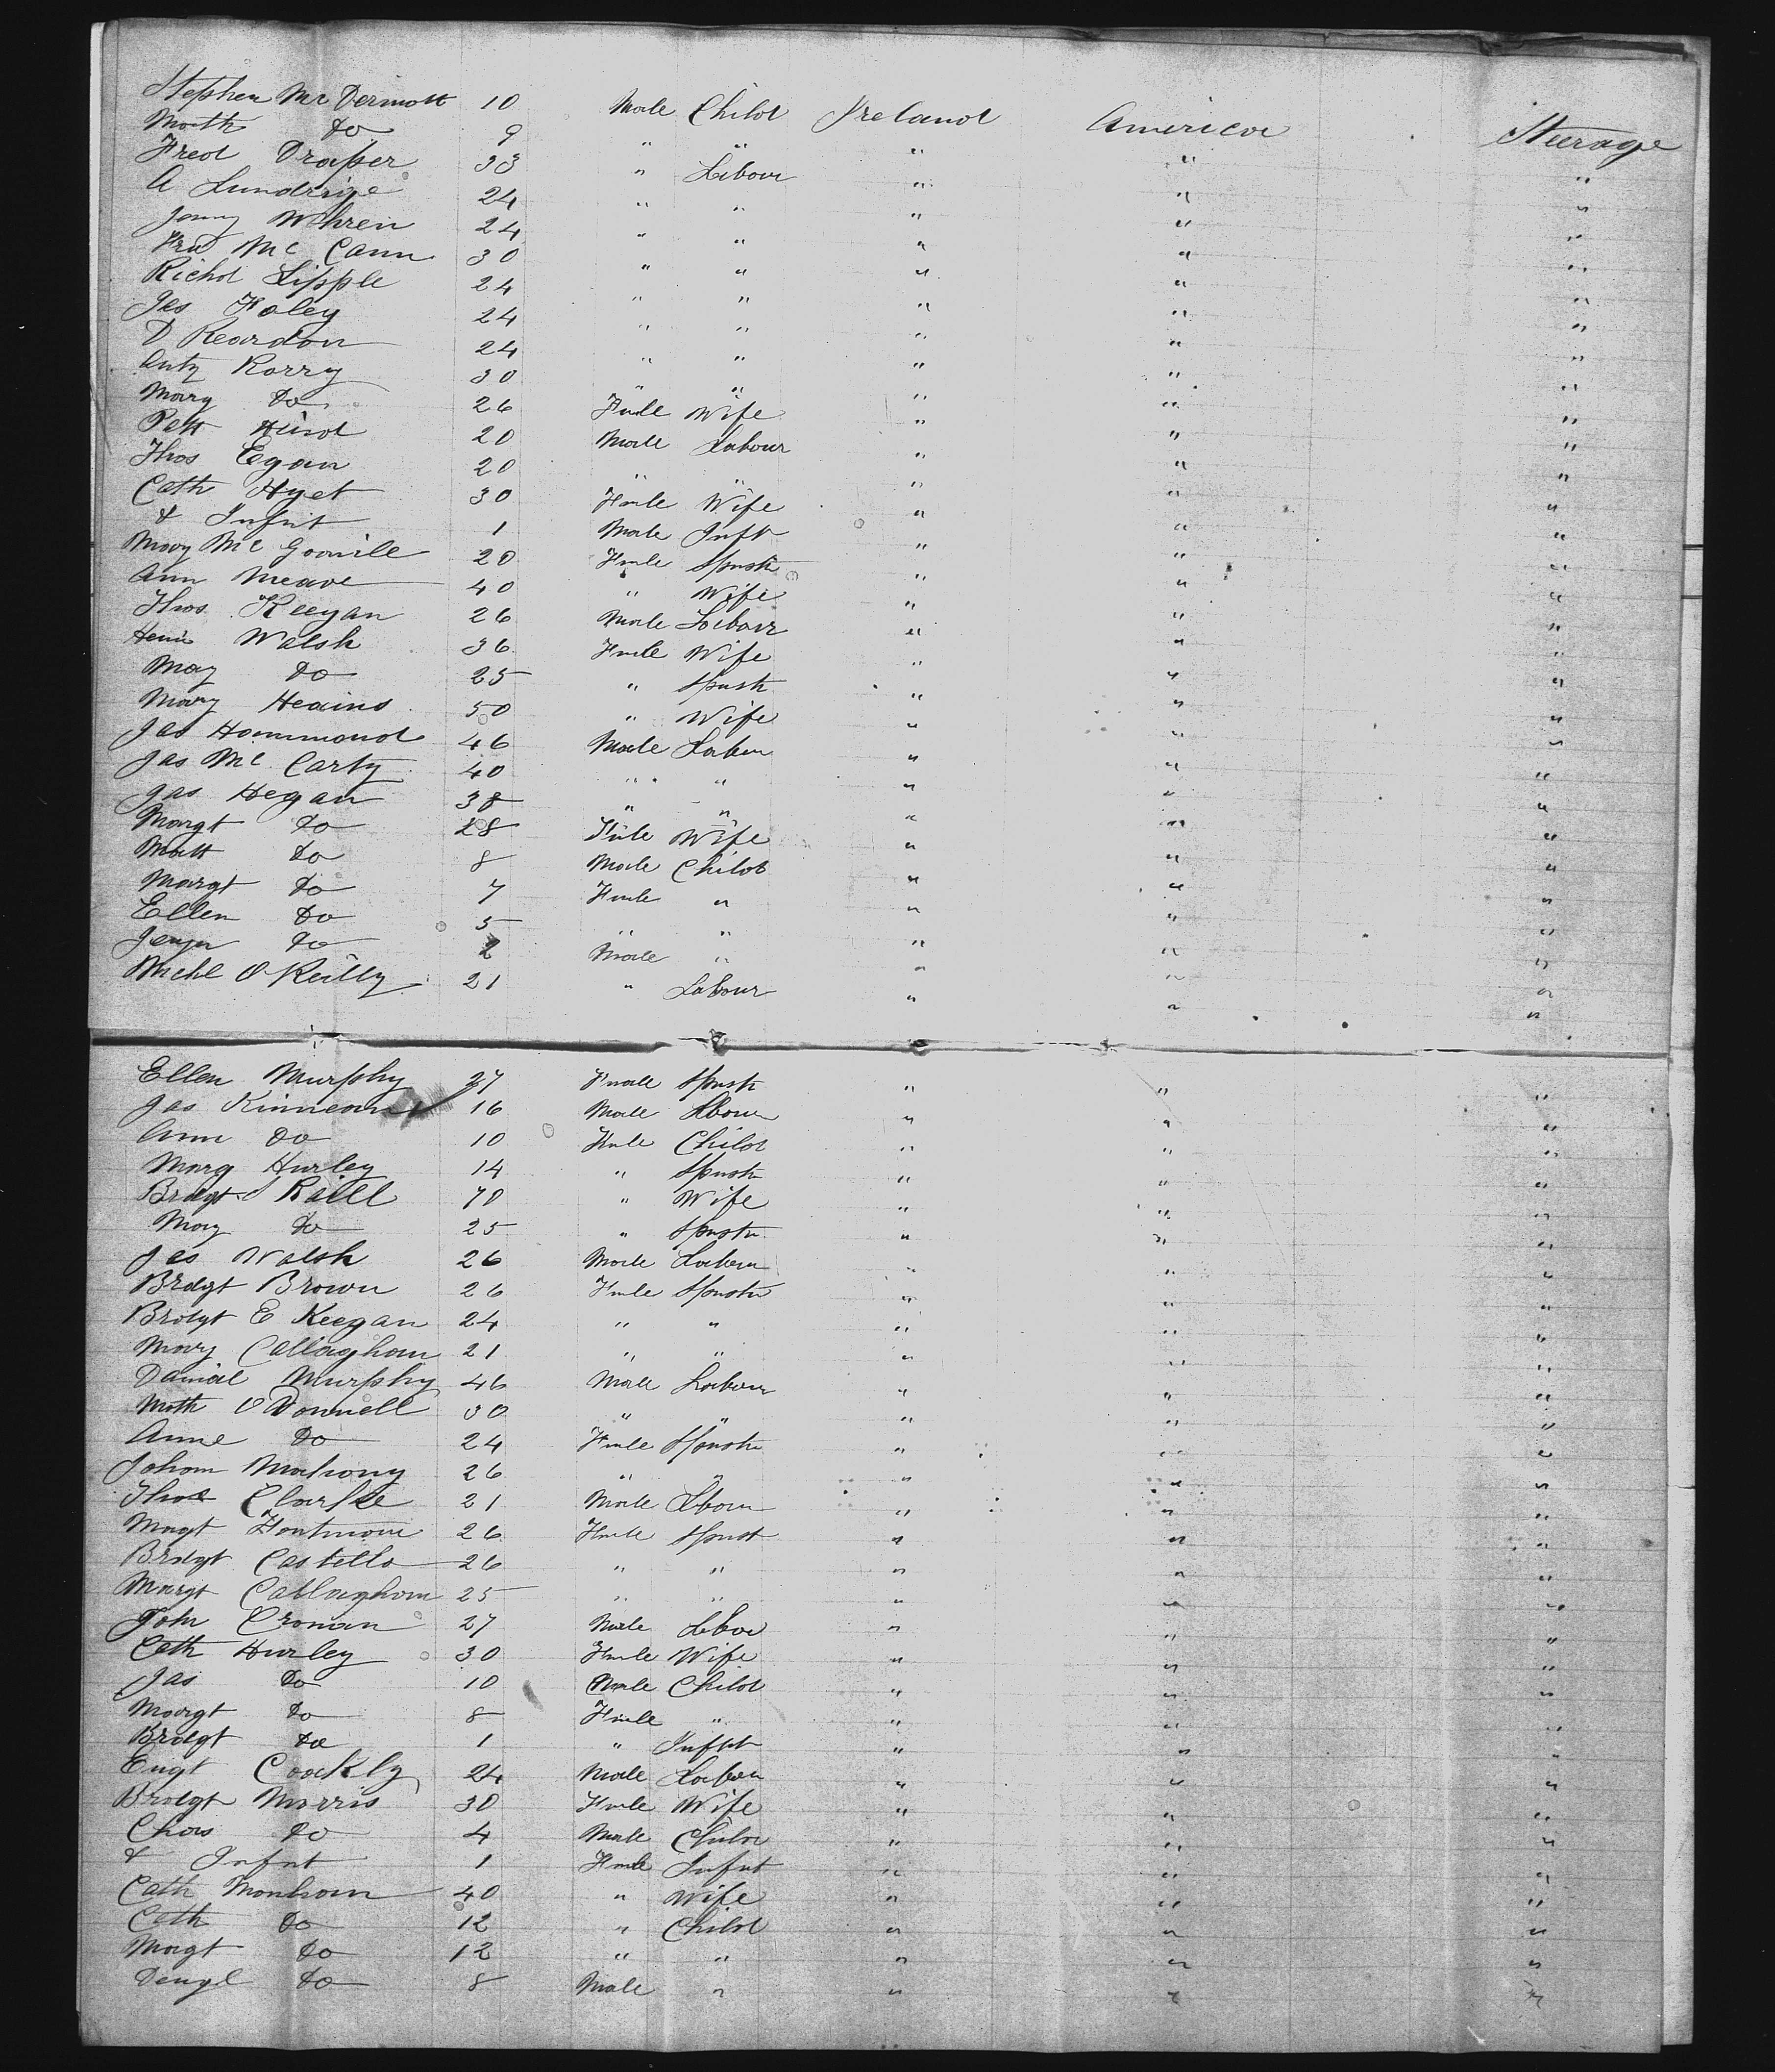 Stephen Mc Dermott 10 Male Child Ireland America Steerage
Math do 9 " " " " "
Fred Draper 33 " Labour " " "
A Lundrige 24 " " " " "
Jonny Wehren 24 " " " " "
Fra Mc Cann 30 " " " " "
Richd Lipple 24 " " " " "
Jas Foley 24 " " " " "
D Reardon 24 " " " " "
Anty Rorry 30 " " " " "
Mary do 26 Fmle Wife " " "
Patt Hurd 20 Male Labour " " "
Thos Egan 20 " " " " "
Cath Hyet 30 Fmle Wife " " "
& Infnt 1 Male Inft " " "
Mary Mc 20 Fmle Spnstr " " "
Ann Meave 40 " Wife " " "
Thos Keegan 26 Male Labour " " "
Walsh 36 Fmle Wife " " "
May do 25 " Spnstr " " "
Mary Heains 50 " Wife " " "
Jas Hammond 46 Male Labour " " "
Jas Mc Carty 40 " " " " "
Jas Hegan 38 " " " " "
Margt do 28 Fmle Wife " " "
Matt do 8 Male Child " " "
Margt do 7 Fmle " " " "
Ellen do 5 " " " " "
do 2 Male " " " "
Michl O Reilly 21 " Labour " " "
Ellen Murphy 27 Fmale Spnstr " " "
Jas Kinneary 16 Male Lbour " " "
Ann do 10 Fmle Child " " "
Marg Hurley 14 " Spnstr " " "
Bridgt Raill 70 " Wife " " "
May do 25 " Spnstr " " "
Jas Walsh 26 Male Labour " " "
Brdgt Brown 26 Fmle Spnstr " " "
Bridgt E Keegan 24 " " " " "
Mary Callaghan 21 " " " " "
Danial Murphy 46 Male Labour " " "
Math O Donnell 30 " " " " "
Anne do 24 Fmle Spnstr " " "
Johan Mahony 26 " " " " "
Thos Clarke 21 Male Lbour " " "
Magt 26 Fmle Spnst " " "
Bridgt Castello 26 " " " " "
Margt Callaghan 25 " " " " "
John Cronan 27 Male " " "
Cath Hurley 30 Fmle Wife " " "
Jas do 10 Male Child " " "
Margt do 8 Fmle " " " "
Bridgt do 1 " Infnt " " "
Coackly 24 Male Labour " " "
Bridgt Morris 30 Fmle Wife " " "
Chas do 4 Male Child " " "
& Infnt 1 Fmle Infnt " " "
Cath Monhan 40 " Wife " " "
Cath do 12 " Child " " "
Magt do 12 " " " " "
do 8 Male " " " "